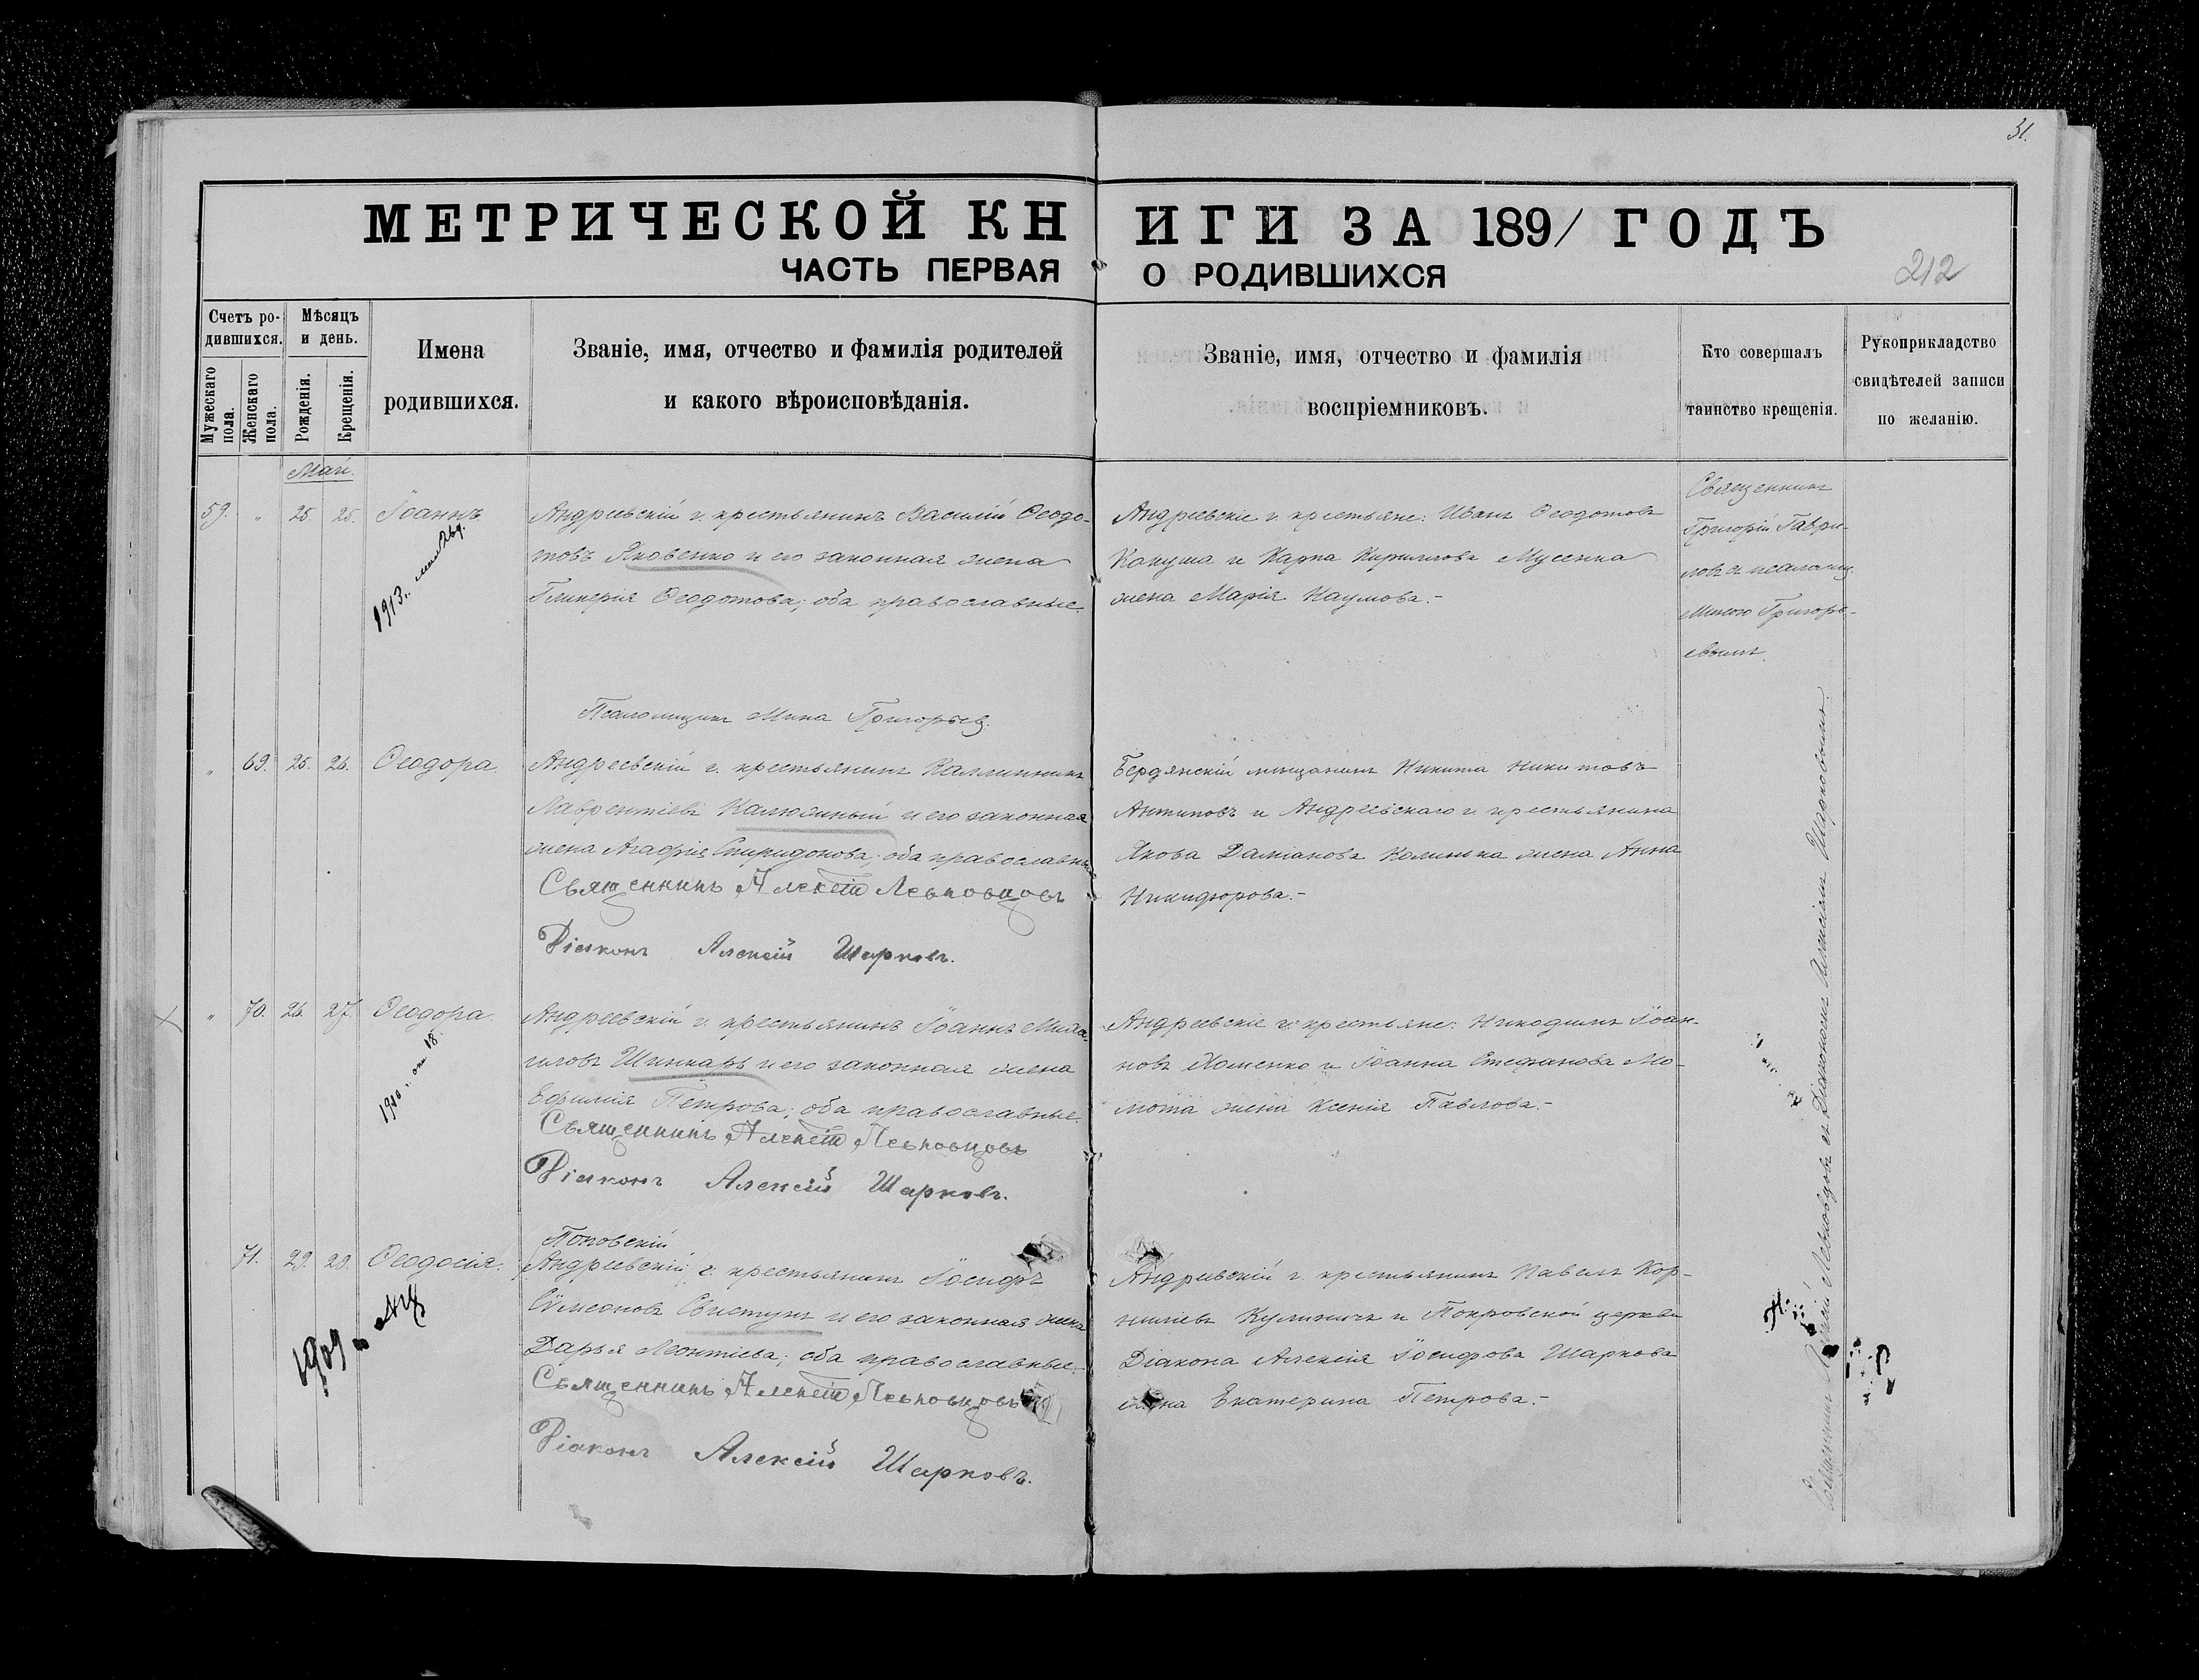 31.
МЕТРИЧЕСКОЙ КНИГИ ЗА 1891 ГОДЪ
ЧАСТЬ ПЕРВАЯ О РОДИВШИХСЯ
212
Счетъ ро-
дившихся.
Мужескаго пола.
Женскаго пола.
Мѣсяцъ
и день.
Рожденія.
Крещенія.
Имена
родившихся.
Званіе, имя, отчество и фамилія родителей
и какого вѣроисповѣданія.
Званіе, имя, отчество и фамилія
воспріемниковъ.
Кто совершалъ
таинство крещенія.
Рукоприкладство
свидѣтелей записи
по желанію.
Май.
59. " 25. 25. Іоаннъ.
1913 г.
Андреевскій г. крестьянинъ Василій Ѳеодо-
товъ Яковенко и его законная жена
Гликерія Ѳеодотова; оба православные.
Андреевскіе г. крестьяне: Иванъ Ѳеодотовъ
Кокуша и Карпа Кириллова Мусенка
жена Марія Наумова.-
Священникъ
Григорій Гаври-
ловъ съ псаломщ.
Миною Григорь-
евымъ.
Псаломщикъ Мина Григорьев.
" 69. 25. 26. Ѳеодора.
Андреевскій г. крестьянинъ Каллиникъ
Лаврентіевъ Калюжный и его законная
жена Агафія Спиридонова; оба православны
Священникъ Алексій Левковцовъ
Діаконъ Алексій Шарковъ.
Бердянскій мѣщанинъ Никита Никитовъ
Антиповъ и Андреевскаго г. крестьянина
Якова Даміанова Калинька жена Анна
Никифорова.-
" 70. 26. 27. Ѳеодора.
Андреевскій г. крестьянинъ Іоаннъ Миха-
иловъ Шинкарь и его законная жена
Ефимія Петрова; оба православные.
Священникъ Алексій Левковцовъ
Діаконъ Алексій Шарковъ.
Андреевскіе г. крестьяне: Никодимъ Іоан-
новъ Хоменко и Іоанна Стефанова Мо-
мота жена Ксенія Павлова.-
71. 29. 29. Ѳеодосія.
1909
Поповскій
Андреевскій г. крестьянинъ Іосифъ
Сѵмеоновъ Свистунъ и его законная жена
Дарья Леонтіева; оба православные.
Священникъ Алексій Левковцовъ
Діаконъ Алексій Шарковъ.
Андреевскій г. крестьянинъ Павелъ Кор-
ниліевъ Куличичъ и Покровской церкви
Діакона Алексія Іосифова Шаркова
жена Екатерина Петрова.-
Священникъ Алексій Левковцовъ съ Діакономъ Алексіемъ Шарковымъ.